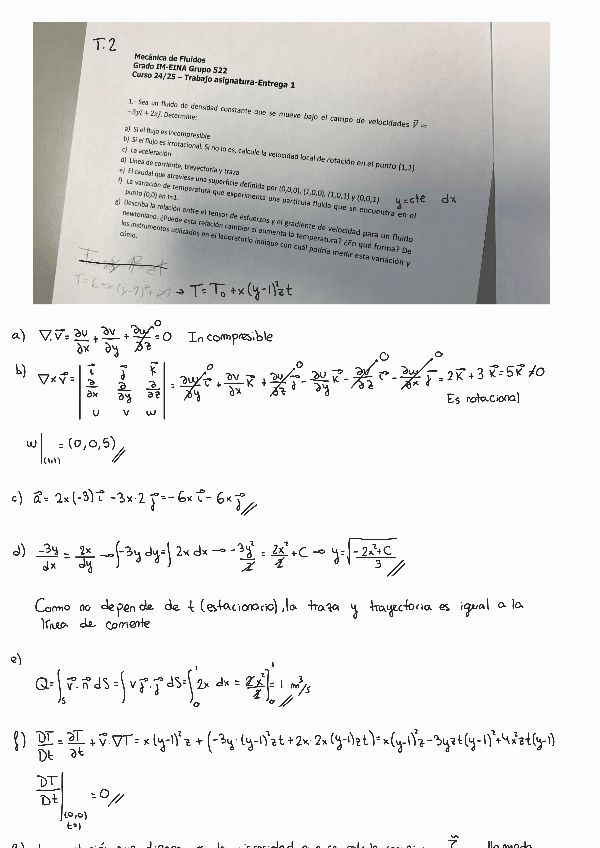 T.2
Mecánica de Fluidos
Grado IM-EINA Grupo 522
Curso 24/25 – Trabajo asignatura-Entrega 1
1.- Sea un fluido de densidad constante que se mueve bajo el campo de velocidades v⃗ =
−3yi + 2xj. Determine:
a) Si el flujo es incompresible
b) Si el flujo es irrotacional. Si no lo es, calcule la velocidad local de rotación en el punto (1,1)
c) La aceleración
d) Línea de corriente, trayectoria y traza
e) El caudal que atraviese una superficie definida por (0,0,0), (1,0,0), (1,0,1) y (0,0,1) y=cte dx
f) La variación de temperatura que experimenta una partícula fluida que se encuentra en el
punto (0,0) en t=1.
g) Describa la relación entre el tensor de esfuerzos y el gradiente de velocidad para un fluido
newtoniano. ¿Puede esta relación cambiar si aumenta la temperatura? ¿En qué forma? De
los instrumentos utilizados en el laboratorio indique con cuál podría medir esta variación y
cómo.
→ T = T₀ + x(y-1)²zt
a) ∇·v⃗ = ∂u/∂x + ∂v/∂y + ∂w/∂z = 0 Incompresible
b) ∇×v⃗ = | i⃗ j⃗ k⃗ ; ∂/∂x ∂/∂y ∂/∂z ; u v w | = ∂w/∂y i⃗ + ∂v/∂x k⃗ + ∂u/∂z j⃗ − ∂u/∂y k⃗ − ∂v/∂z i⃗ − ∂w/∂x j⃗ = 2k⃗ + 3k⃗ = 5k⃗ ≠ 0
Es rotacional
w|(1,1) = (0,0,5)
c) a⃗ = 2x(-3) i⃗ - 3x·2 j⃗ = -6x i⃗ - 6x j⃗
d) -3y/dx = 2x/dy → ∫-3y dy = ∫2x dx → -3y²/2 = 2x²/2 + C → y = √(-2x²+C / 3)
Como no depende de t (estacionario), la traza y trayectoria es igual a la
línea de corriente
e)
Q = ∫s v⃗·n⃗ dS = ∫ v j⃗·j⃗ dS = ∫₀¹ 2x dx = 2x²/2 ]₀¹ = 1 m³/s
f) DT/Dt = ∂T/∂t + v⃗·∇T = x(y-1)²z + (-3y·(y-1)²zt + 2x·2x(y-1)zt) = x(y-1)²z - 3yzt(y-1)² + 4x²zt(y-1)
DT/Dt |(0,0) t=1 = 0